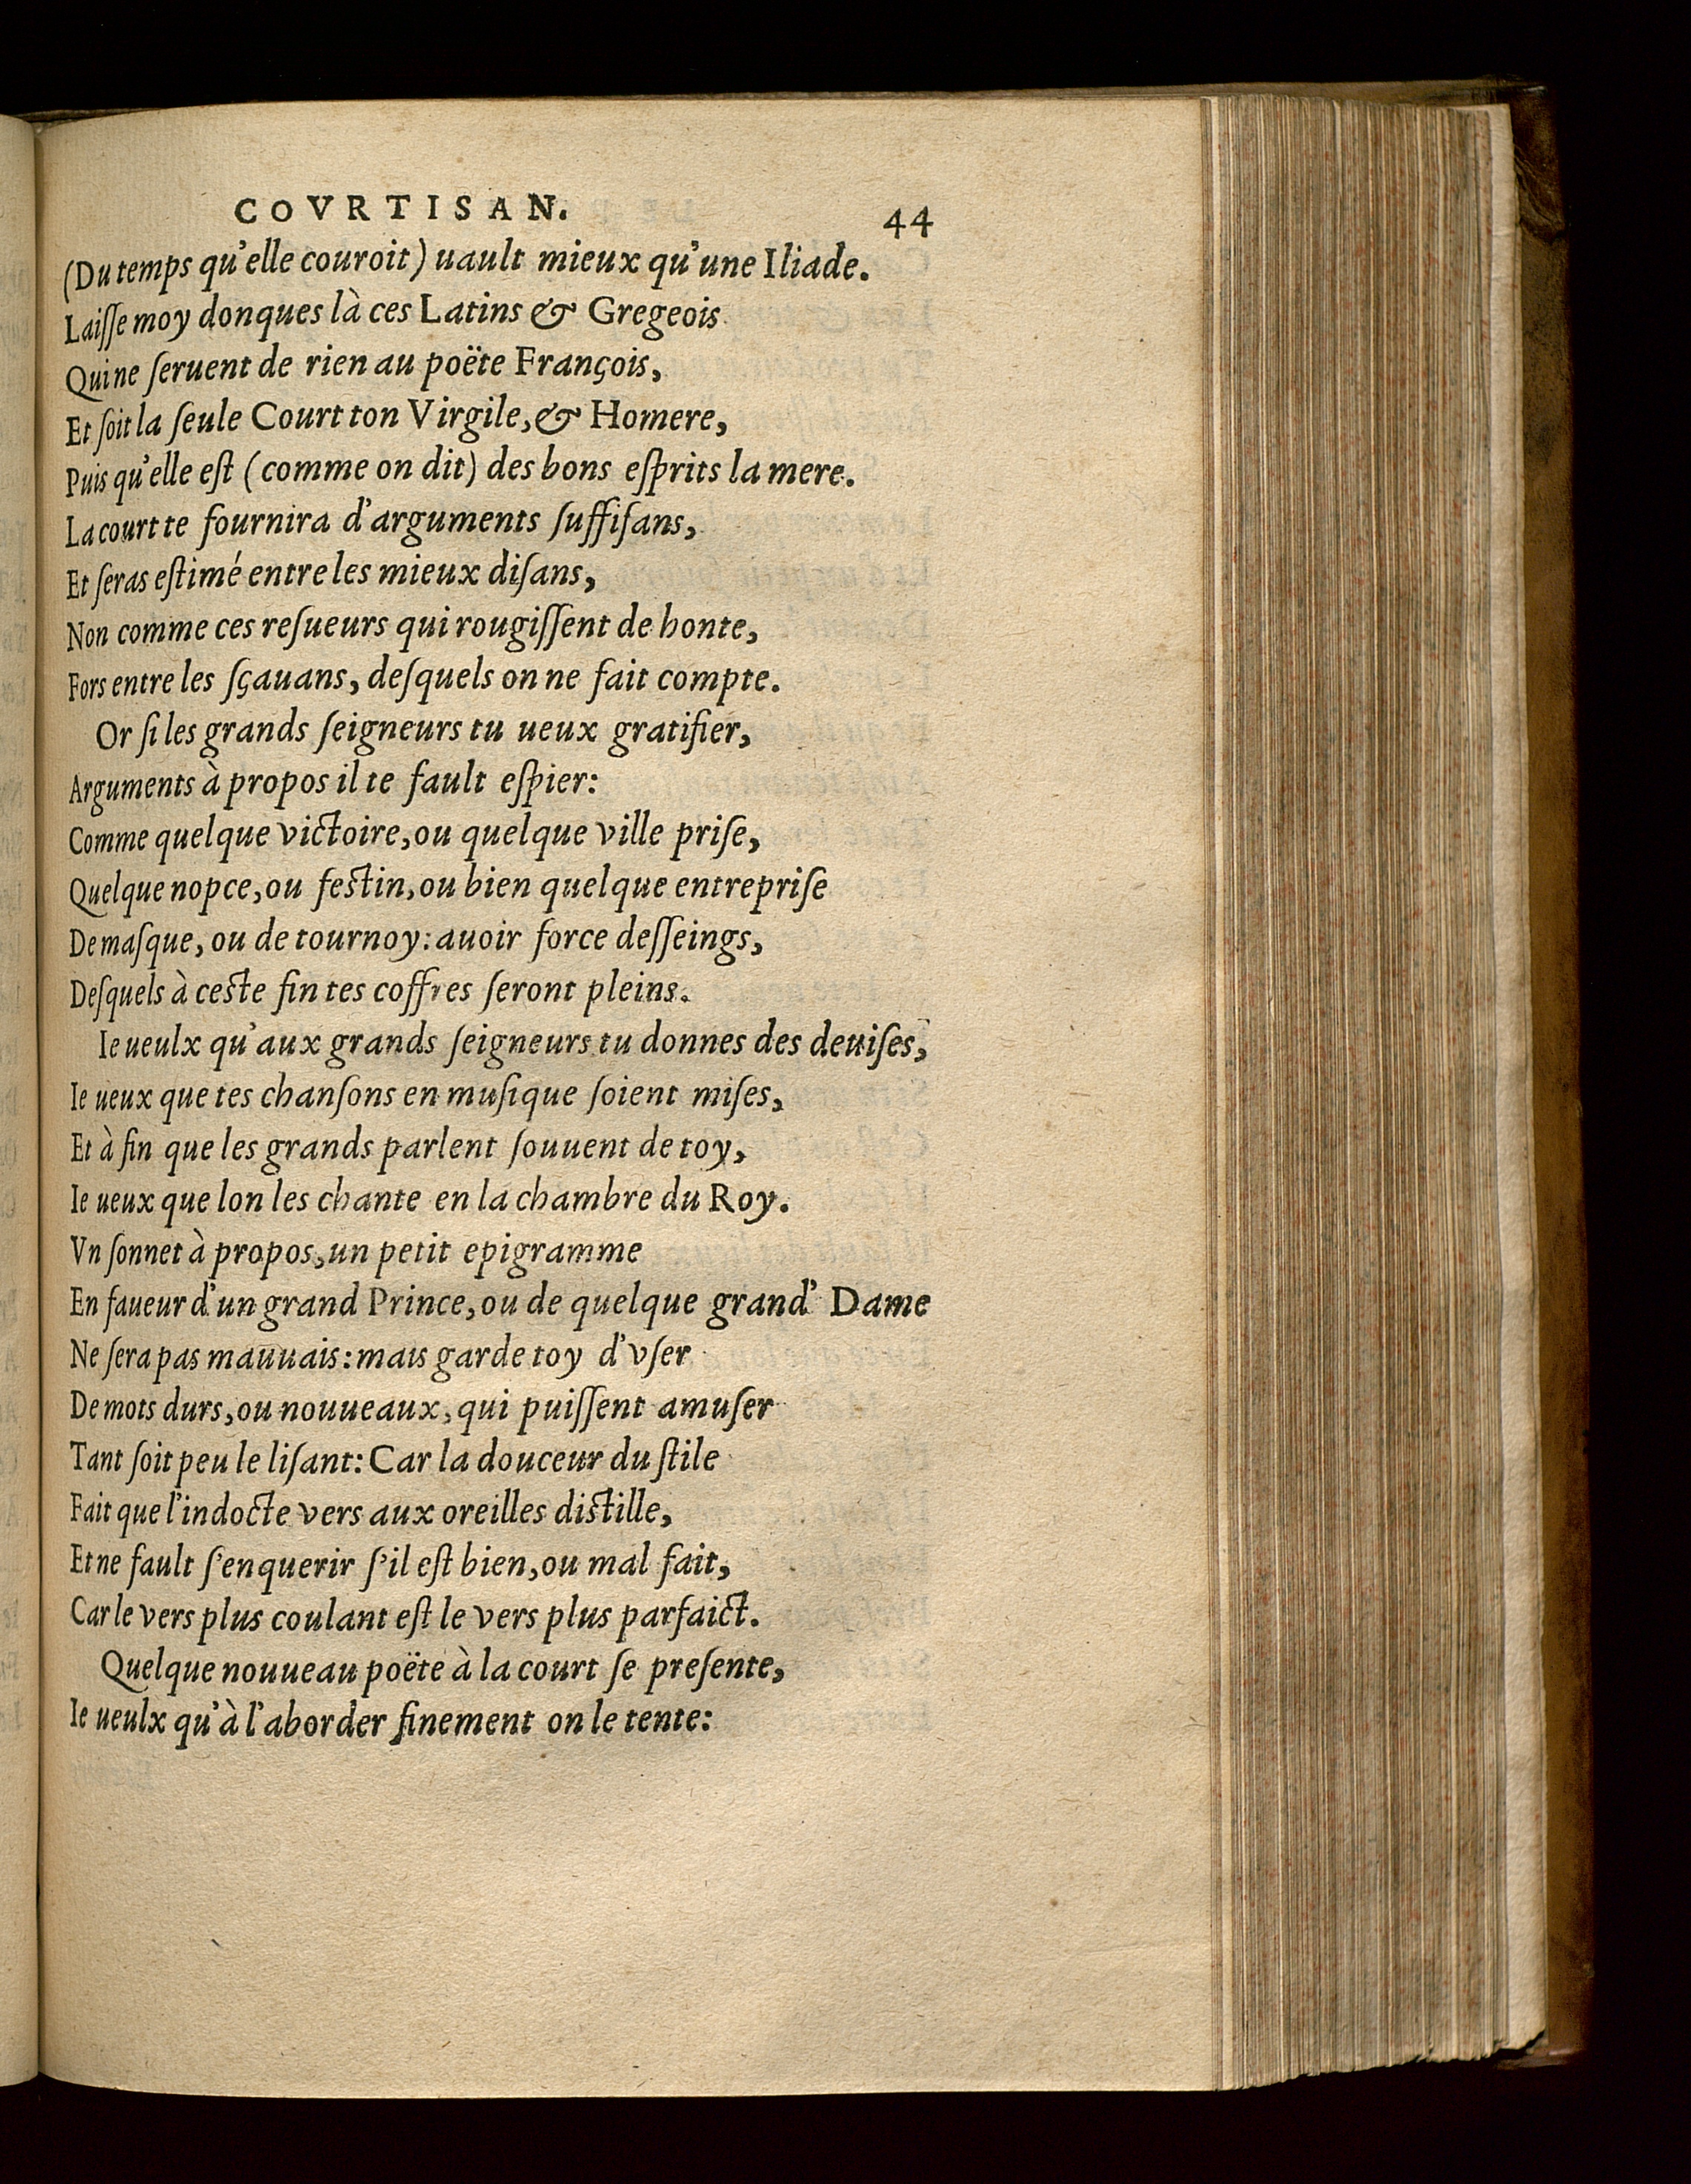 COVRTISAN. 44
(Du temps qu'elle couroit) uault mieux qu'une Iliade.
Laiſſe moy donques là ces Latins & Gregeois
Qui ne ſeruent de rien au poëte François,
Et ſoit la ſeule Court ton Virgile, & Homere,
Puis qu'elle eſt (comme on dit) des bons eſprits la mere.
La court te fournira d'arguments ſuffiſans,
Et ſeras eſtimé entre les mieux diſans,
Non comme ces reſueurs qui rougiſſent de honte,
Fors entre les ſçauans, deſquels on ne fait compte.
Or ſi les grands ſeigneurs tu ueux gratifier,
Arguments à propos il te fault eſpier:
Comme quelque victoire, ou quelque ville priſe,
Quelque nopce, ou feſtin, ou bien quelque entrepriſe
De maſque, ou de tournoy: auoir force deſſeings,
Deſquels à ceſte fin tes coffres ſeront pleins.
Ie ueulx qu'aux grands ſeigneurs tu donnes des deuiſes,
Ie ueux que tes chanſons en muſique ſoient miſes,
Et à fin que les grands parlent ſouuent de toy,
Ie ueux que lon les chante en la chambre du Roy.
Vn ſonnet à propos, un petit epigramme
En faueur d'un grand Prince, ou de quelque grand' Dame
Ne ſera pas mauuais: mais garde toy d'vſer
De mots durs, ou nouueaux, qui puiſſent amuſer
Tant ſoit peu le liſant: Car la douceur du ſtile
Fait que l'indocte vers aux oreilles diſtille,
Et ne fault ſ'enquerir ſ'il eſt bien, ou mal fait,
Car le vers plus coulant eſt le vers plus parfaict.
Quelque nouueau poëte à la court ſe preſente,
Ie ueulx qu'à l'aborder finement on le tente: